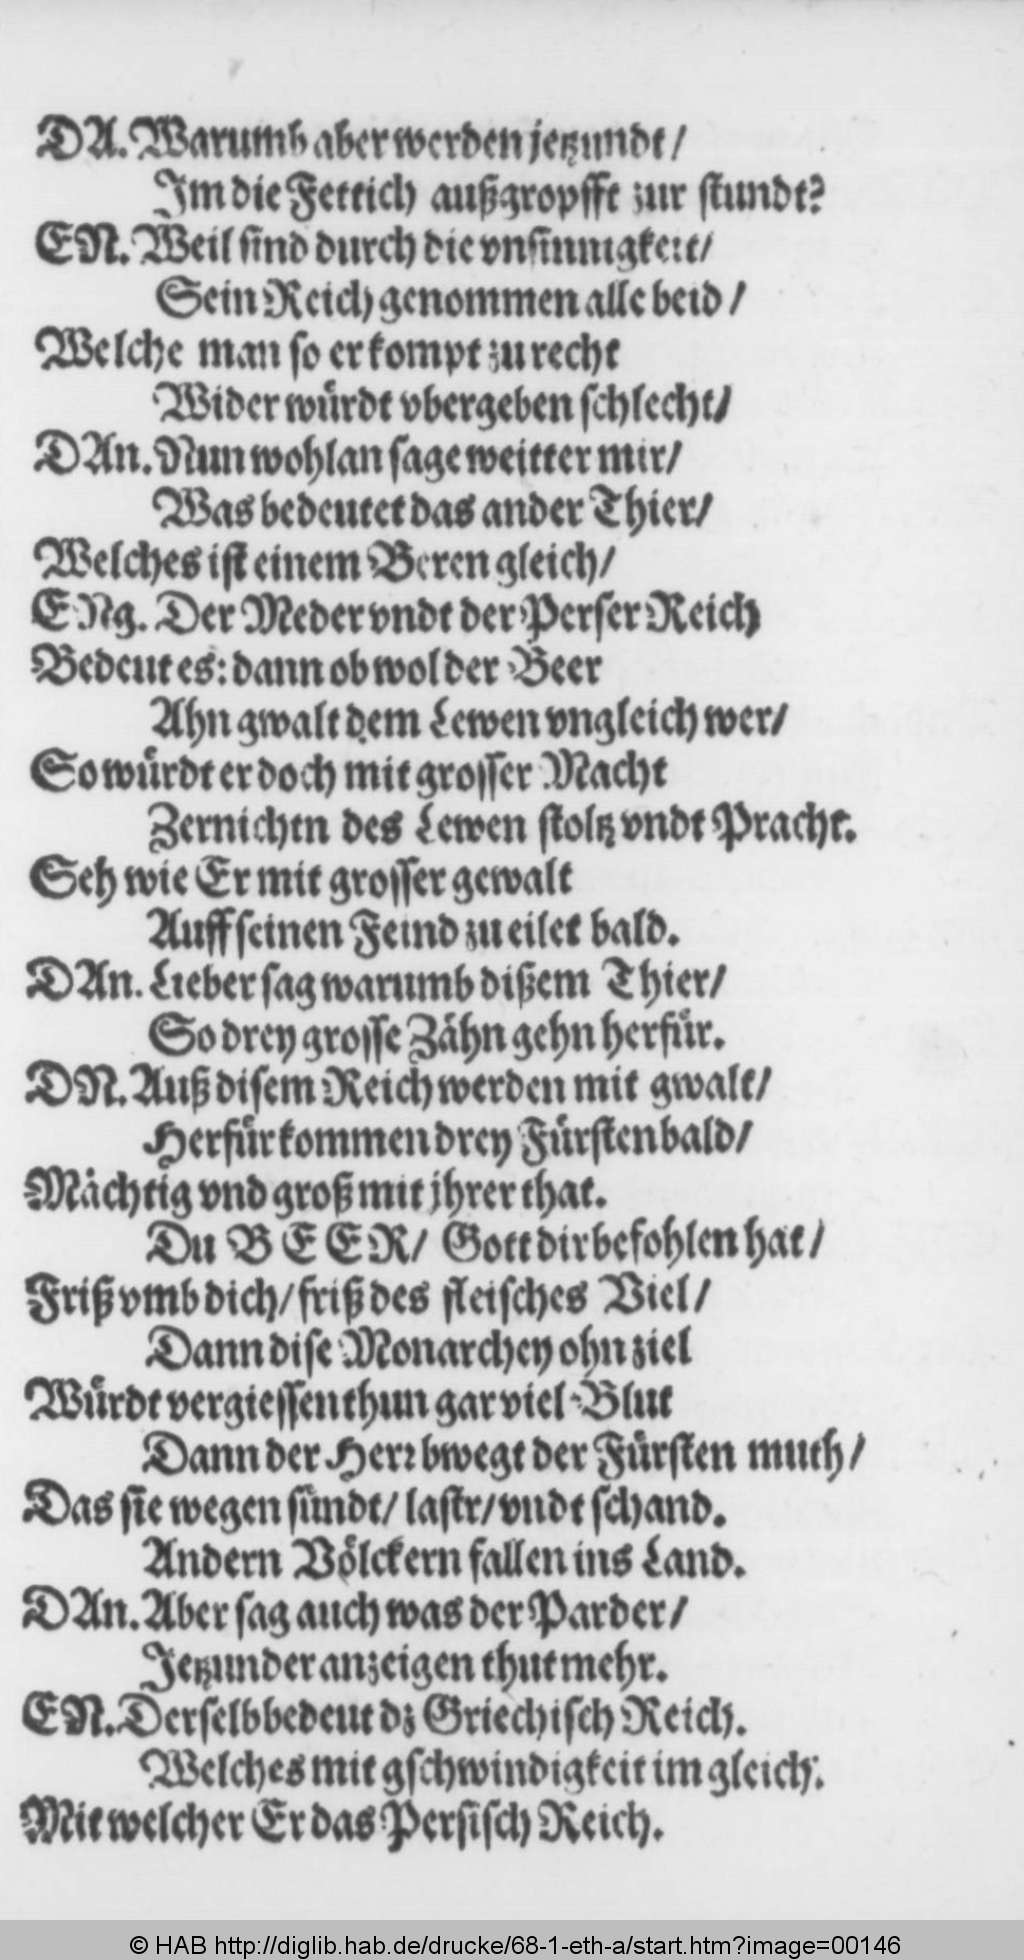 DA. Warumb aber werden jetzundt /
Im die Fettich außgropfft zur stundt?
EN. Weil sind durch die vnsinnigkeit /
Sein Reich genommen alle beid /
Welche man so er kompt zu recht
Wider würdt vbergeben schlecht /
DAn. Nun wohlan sage weitter mir /
Was bedeutet das ander Thier /
Welches ist einem Beren gleich /
ENg. Der Meder vndt der Perser Reich
Bedeut es: dann ob wol der Beer
Ahn gwalt dem Lewen vngleich wer /
So würdt er doch mit grosser Macht
Zernichtn des Lewen stoltz vndt Pracht.
Seh wie Er mit grosser gewalt
Auff seinen Feind zu eilet bald.
DAn. Lieber sag warumb dißem Thier /
So drey grosse Zähn gehn herfür.
DN. Auß disem Reich werden mit gwalt /
Herfür kommen drey Fürsten bald /
Mächtig vnd groß mit jhrer that.
Du BEER / Gott dir befohlen hat /
Friß vmb dich / friß des fleisches Viel /
Dann dise Monarchey ohn ziel
Würdt vergiessen thun gar viel Blut
Dann der Herr bwegt der Fürsten muth /
Das sie wegen sündt / lastr / vndt schand.
Andern Völckern fallen ins Land.
DAn. Aber sag auch was der Parder /
Jetzunder anzeigen thut mehr.
EN. Derselb bedeut dz Griechisch Reich.
Welches mit gschwindigkeit im gleich:
Mit welcher Er das Persisch Reich.
© HAB http://diglib.hab.de/drucke/68-1-eth-a/start.htm?image=00146